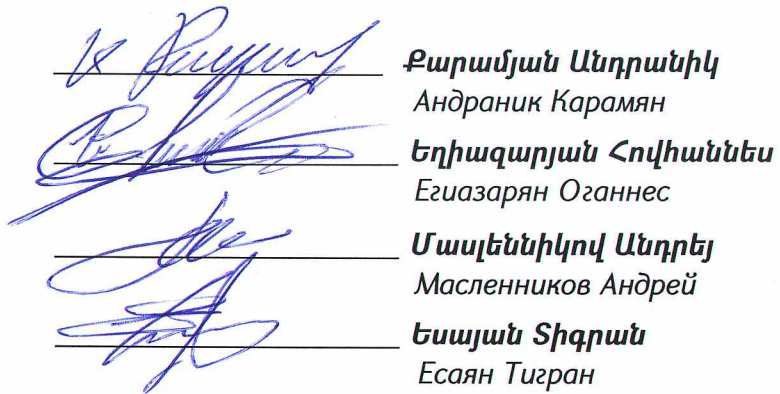 Քարամյան Անդրանիկ
Андраник Карамян
Եղիազարյան Հովհաննես
Егиазарян Оганнес
Մասլեննիկով Անդրեյ
Масленников Андрей
Եսայան Տիգրան
Есаян Тигран